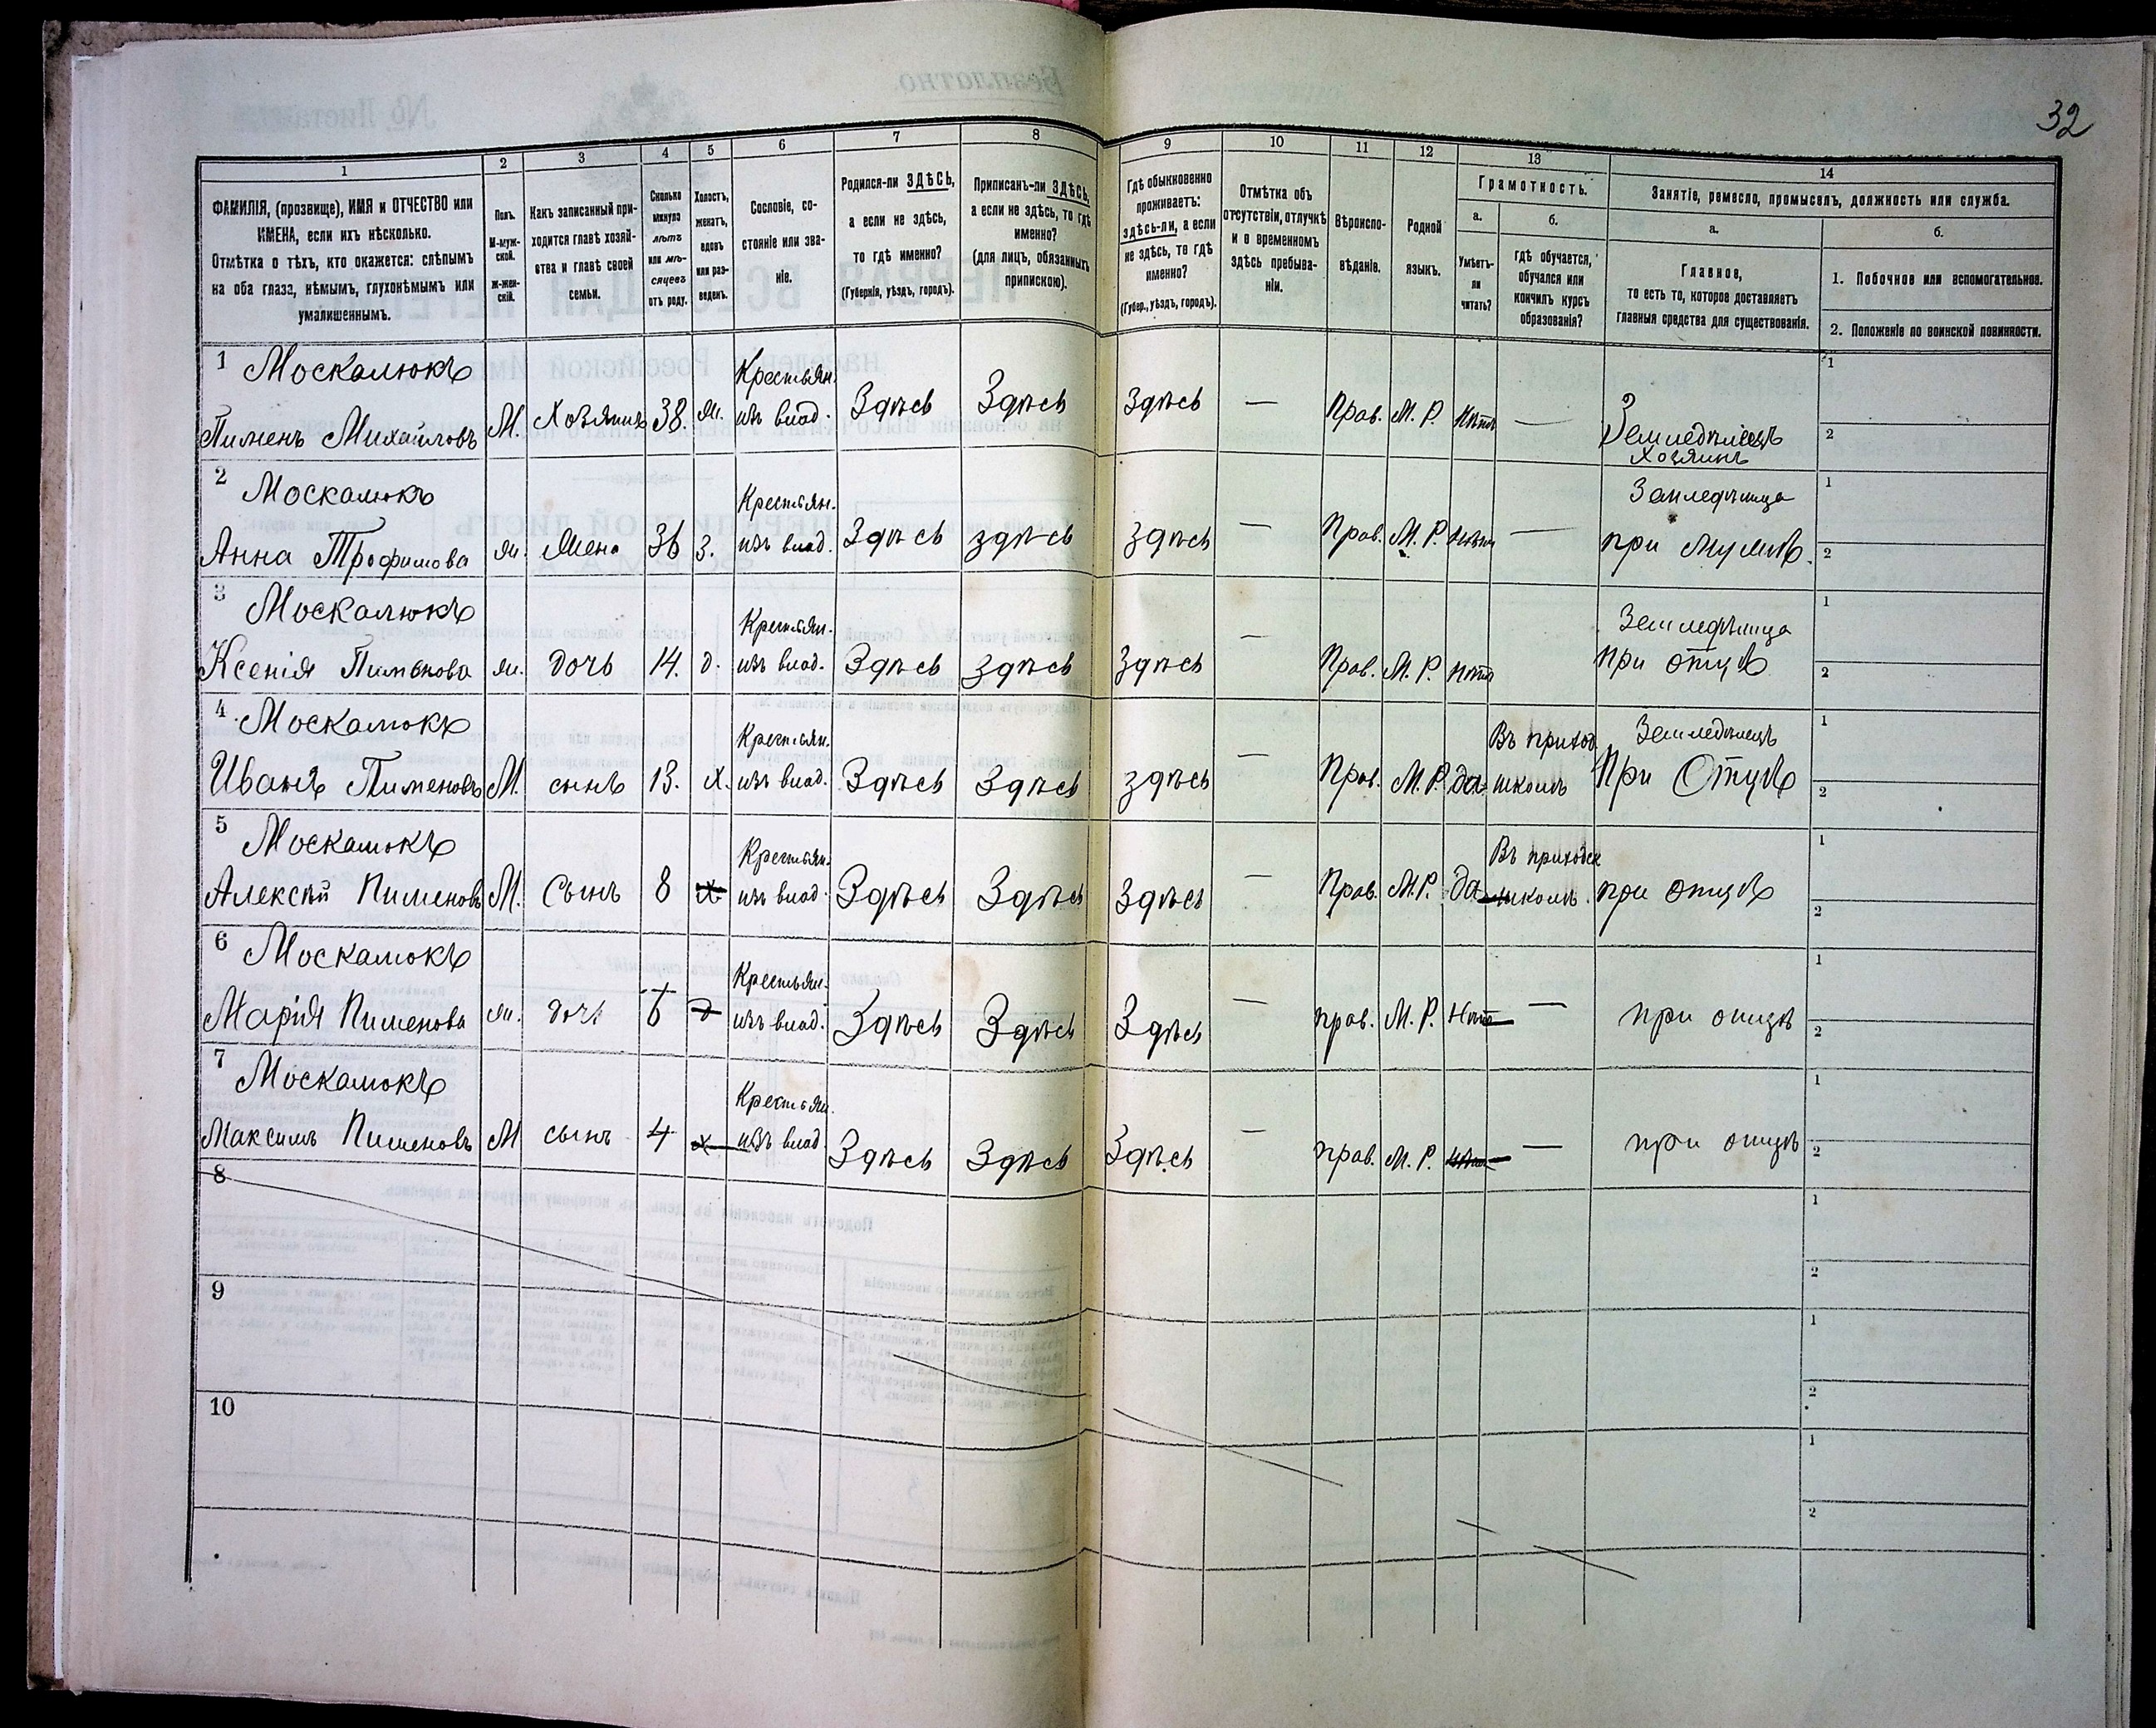 32
1 2 3 4 5 6 7 8 9 10 11 12 13 14
ФАМИЛІЯ, (прозвище), ИМЯ и ОТЧЕСТВО или
ИМЕНА, если ихъ нѣсколько.
Отмѣтка о тѣхъ, кто окажется: слѣпымъ
на оба глаза, нѣмымъ, глухонѣмымъ или
умалишеннымъ.
Полъ.
М-муж-
ской.
ж-жен-
скій.
Какъ записанный при-
ходится главѣ хозяй-
ства и главѣ своей
семьи.
Сколько
минуло
лѣтъ
или мѣ-
сяцевъ
отъ роду.
Холостъ,
женатъ,
вдовъ
или раз-
веденъ.
Сословіе, со-
стояніе или зва-
ніе.
Родился-ли ЗДѢСЬ,
а если не здѣсь,
то гдѣ именно?
(Губернія, уѣздъ, городъ).
Приписанъ-ли ЗДѢСЬ,
а если не здѣсь, то гдѣ
именно?
(для лицъ, обязанныхъ
припискою).
Гдѣ обыкновенно
проживаетъ:
здѣсь-ли, а если
не здѣсь, то гдѣ
именно?
(Губер., уѣздъ, городъ).
Отмѣтка объ
отсутствіи, отлучкѣ
и о временномъ
здѣсь пребыва-
ніи.
Вѣроиспо-
вѣданіе.
Родной
языкъ.
Грамотность.
а.
Умѣетъ-
ли
читать?
б.
гдѣ обучается,
обучался или
кончилъ курсъ
образованія?
Занятіе, ремесло, промыселъ, должность или служба.
а.
Главное,
то есть то, которое доставляетъ
главныя средства для существованія.
б.
1. Побочное или вспомогательное.
2. Положеніе по воинской повинности.
1 Москалюкъ
Пименъ Михайловъ М. Хозяинъ 38. ж. Крестьян. изъ влад. Здѣсь Здѣсь здѣсь — Прав. М. Р. Нѣтъ — Земледѣлецъ
Хозяинъ
1
2
2 Москалюкъ
Анна Трофимова ж. Жена 36 з. Крестьян. изъ влад. Здѣсь здѣсь здѣсь — Прав. М. Р. нѣтъ — Земледѣлица
при мужѣ.
1
2
3 Москалюкъ
Ксенія Пименова ж. дочь 14. д. Крестьян. изъ влад. Здѣсь здѣсь здѣсь — Прав. М. Р. нѣтъ Земледѣлица
при отцѣ
1
2
4 Москалюкъ
Иванъ Пименовъ М. сынъ 13. х. Крестьян. изъ влад. Здѣсь Здѣсь здѣсь — Прав. М. Р. да Въ приход. школѣ Земледѣлецъ
При Отцѣ
1
2
5 Москалюкъ
Алексѣй Пименовъ М. Сынъ 8 х Крестьян. изъ влад. Здѣсь Здѣсь Здѣсь — Прав. М. Р. да Въ приходск школѣ. при отцѣ
1
2
6 Москалюкъ
Марія Пименова ж. дочь 6 д Крестьян. изъ влад. Здѣсь Здѣсь Здѣсь — прав. М. Р. Нѣтъ — при отцѣ
1
2
7 Москалюкъ
Максимъ Пименовъ М сынъ 4 х Крестьян. изъ влад. Здѣсь Здѣсь Здѣсь — прав. М. Р. нѣтъ — при отцѣ
1
2
8
1
2
9
1
2
10
1
2